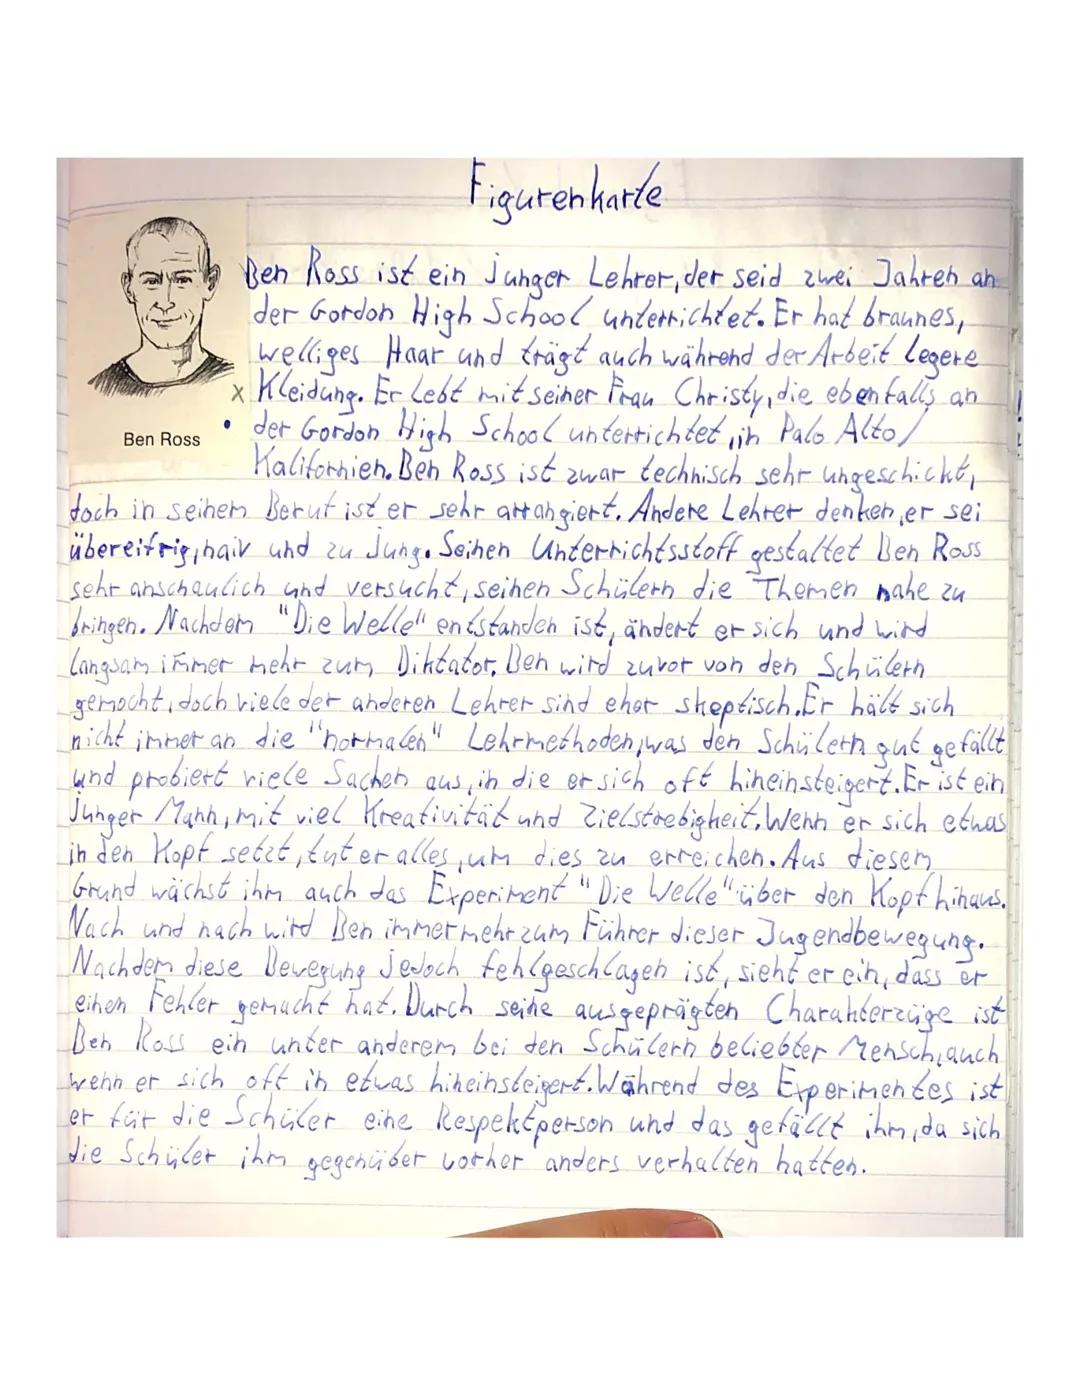 Figurenkarte
Ben Ross
Ben Ross ist ein junger Lehrer, der seid zwei Jahren an
der Gordon High School unterrichtet. Er hat braunes,
welliges Haar und trägt auch während der Arbeit legere
x Kleidung. Er lebt mit seiner Frau Christy, die ebenfalls an
• der Gordon High School unterrichtet, in Palo Alto/
Kalifornien. Ben Ross ist zwar technisch sehr ungeschickt,
doch in seinem Beruf ist er sehr arrangiert. Andere Lehrer denken, er sei
übereifrig, naiv und zu jung. Seinen Unterrichtsstoff gestaltet Ben Ross
sehr anschaulich und versucht, seinen Schülern die Themen nahe zu
bringen. Nachdem "Die Welle" entstanden ist, ändert er sich und wird
langsam immer mehr zum Diktator. Ben wird zuvor von den Schülern
gemocht, doch viele der anderen Lehrer sind eher skeptisch. Er hält sich
nicht immer an die "normalen" Lehrmethoden, was den Schülern gut gefällt
und probiert viele Sachen aus, in die er sich oft hineinsteigert. Er ist ein
junger Mann, mit viel Kreativität und Zielstrebigkeit. Wenn er sich etwas
in den Kopf setzt, tut er alles, um dies zu erreichen. Aus diesem
Grund wächst ihm auch das Experiment "Die Welle" über den Kopf hinaus.
Nach und nach wird Ben immer mehr zum Führer dieser Jugendbewegung.
Nachdem diese Bewegung jedoch fehlgeschlagen ist, sieht er ein, dass er
einen Fehler gemacht hat. Durch seine ausgeprägten Charakterzüge ist
Ben Ross ein unter anderem bei den Schülern beliebter Mensch, auch
wenn er sich oft in etwas hineinsteigert. Während des Experimentes ist
er für die Schüler eine Respektperson und das gefällt ihm, da sich
die Schüler ihm gegenüber vorher anders verhalten hatten.